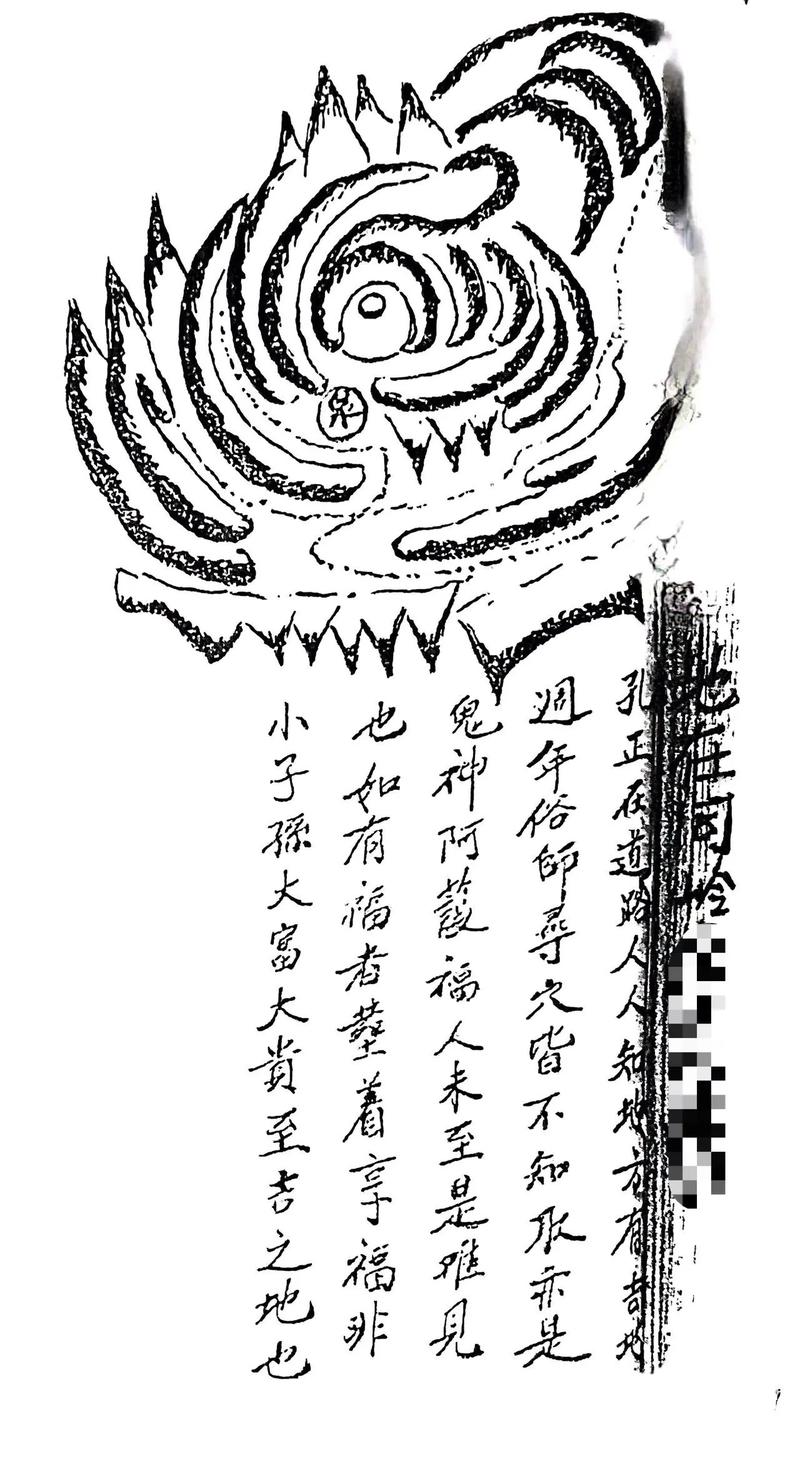 地在同
孔正在道路人人知地方有吉地
週年俗師尋穴皆不知取亦是
鬼神阿護福人未至是难見
也如有福者塟着享福非
小子孫大富大貴至吉之地也